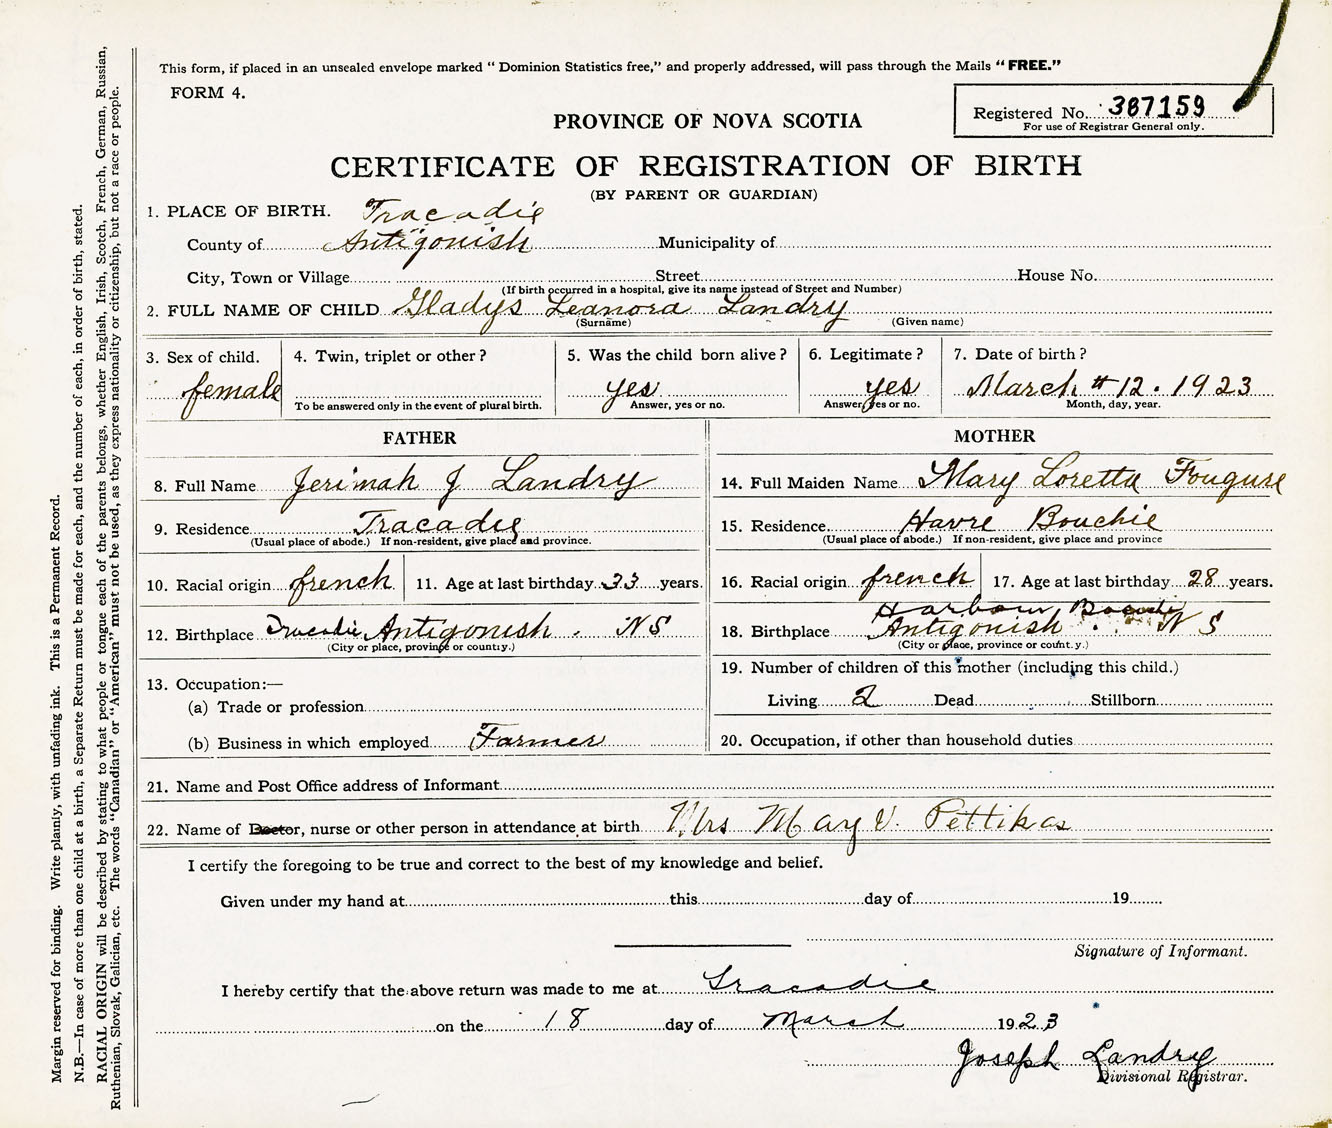 This form, if placed in an unsealed envelope marked "Dominion Statistics free," and properly addressed, will pass through the Mails "FREE."
FORM 4.
Registered No. 387159
For use of Registrar General only.
PROVINCE OF NOVA SCOTIA
CERTIFICATE OF REGISTRATION OF BIRTH
(BY PARENT OR GUARDIAN)
1. PLACE OF BIRTH. Tracadie
County of Antigonish Municipality of
City, Town or Village Street House No.
(If birth occurred in a hospital, give its name instead of Street and Number)
2. FULL NAME OF CHILD Gladys Leanora Landry
(Surname) (Given name)
3. Sex of child. 4. Twin, triplet or other? 5. Was the child born alive? 6. Legitimate? 7. Date of birth?
female yes yes March # 12. 1923
To be answered only in the event of plural birth. Answer, yes or no. Answer, yes or no. Month, day, year.
FATHER MOTHER
8. Full Name Jerimah J Landry 14. Full Maiden Name Mary Loretta Fougure
9. Residence Tracadie 15. Residence Havre Bouchie
(Usual place of abode.) If non-resident, give place and province. (Usual place of abode.) If non-resident, give place and province
10. Racial origin french 11. Age at last birthday 33 years. 16. Racial origin french 17. Age at last birthday 28 years.
Harbour Bouche
12. Birthplace Tracadie Antigonish. NS 18. Birthplace Antigonish. NS
(City or place, province or country.) (City or place, province or count.y.)
13. Occupation:—
(a) Trade or profession
(b) Business in which employed Farmer
19. Number of children of this mother (including this child.)
Living 2 Dead Stillborn
20. Occupation, if other than household duties
21. Name and Post Office address of Informant
22. Name of Doctor, nurse or other person in attendance at birth Mrs Mary V. Pettikas
I certify the foregoing to be true and correct to the best of my knowledge and belief.
Given under my hand at this day of 19
Signature of Informant.
I hereby certify that the above return was made to me at Tracadie
on the 18 day of March 1923
Joseph Landry
Divisional Registrar.
Margin reserved for binding. Write plainly, with unfading ink. This is a Permanent Record.
N.B.—In case of more than one child at a birth, a Separate Return must be made for each, and the number of each, in order of birth, stated.
RACIAL ORIGIN will be described by stating to what people or tongue each of the parents belongs, whether English, Irish, Scotch, French, German, Russian,
Ruthenian, Slovak, Galician, etc. The words "Canadian" or "American" must not be used, as they express nationality or citizenship, but not a race or people.